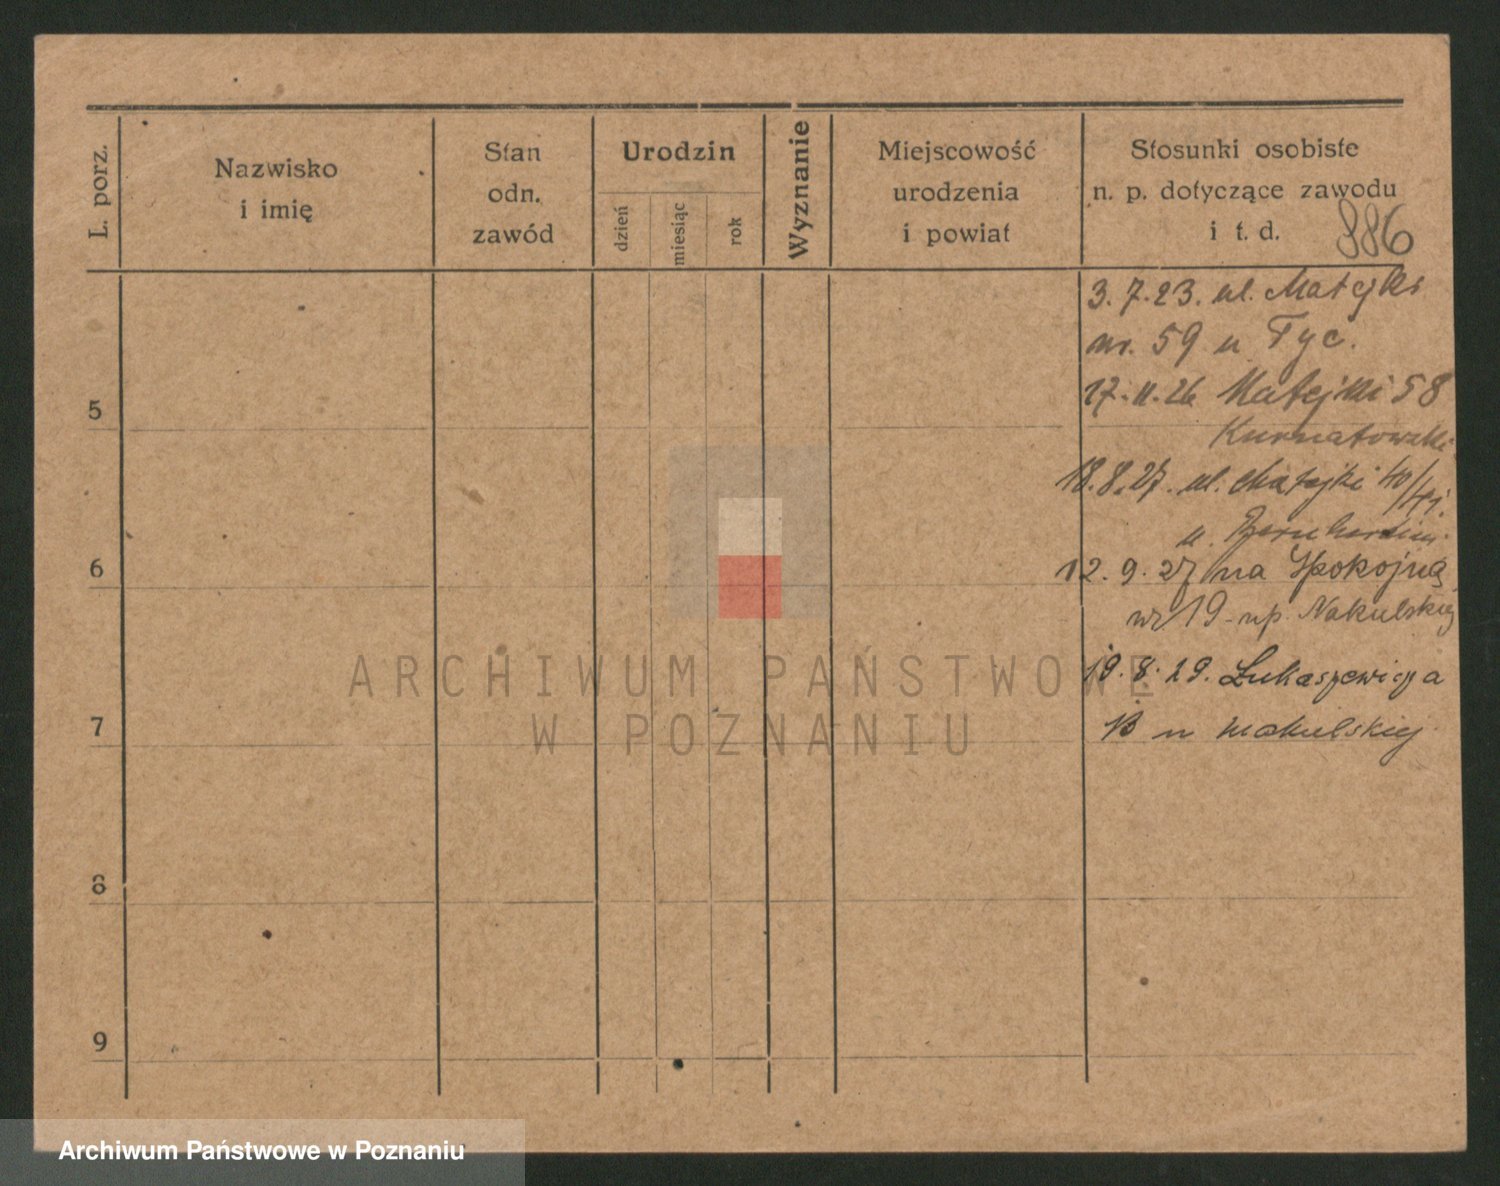 L. porz.
Nazwisko
i imię
Stan
odn.
zawód
Urodzin
dzień
miesiąc
rok
Wyznanie
Miejscowość
urodzenia
i powiat
Stosunki osobiste
n. p. dotyczące zawodu
i t. d.
886
3.7.23. ul. Matejki
nr. 59 u Tyc.
17.11.26 Matejki 58
Kurnatowski
18.8.27. ul. Matejki 40/41.
u.
12.9.27 na Spokojną
nr 19 np. Nakulskiej
19.8.29. Łukaszewicza
13 u Nakulskiej
5
6
7
8
9
ARCHIWUM PAŃSTWOWE
W POZNANIU
Archiwum Państwowe w Poznaniu